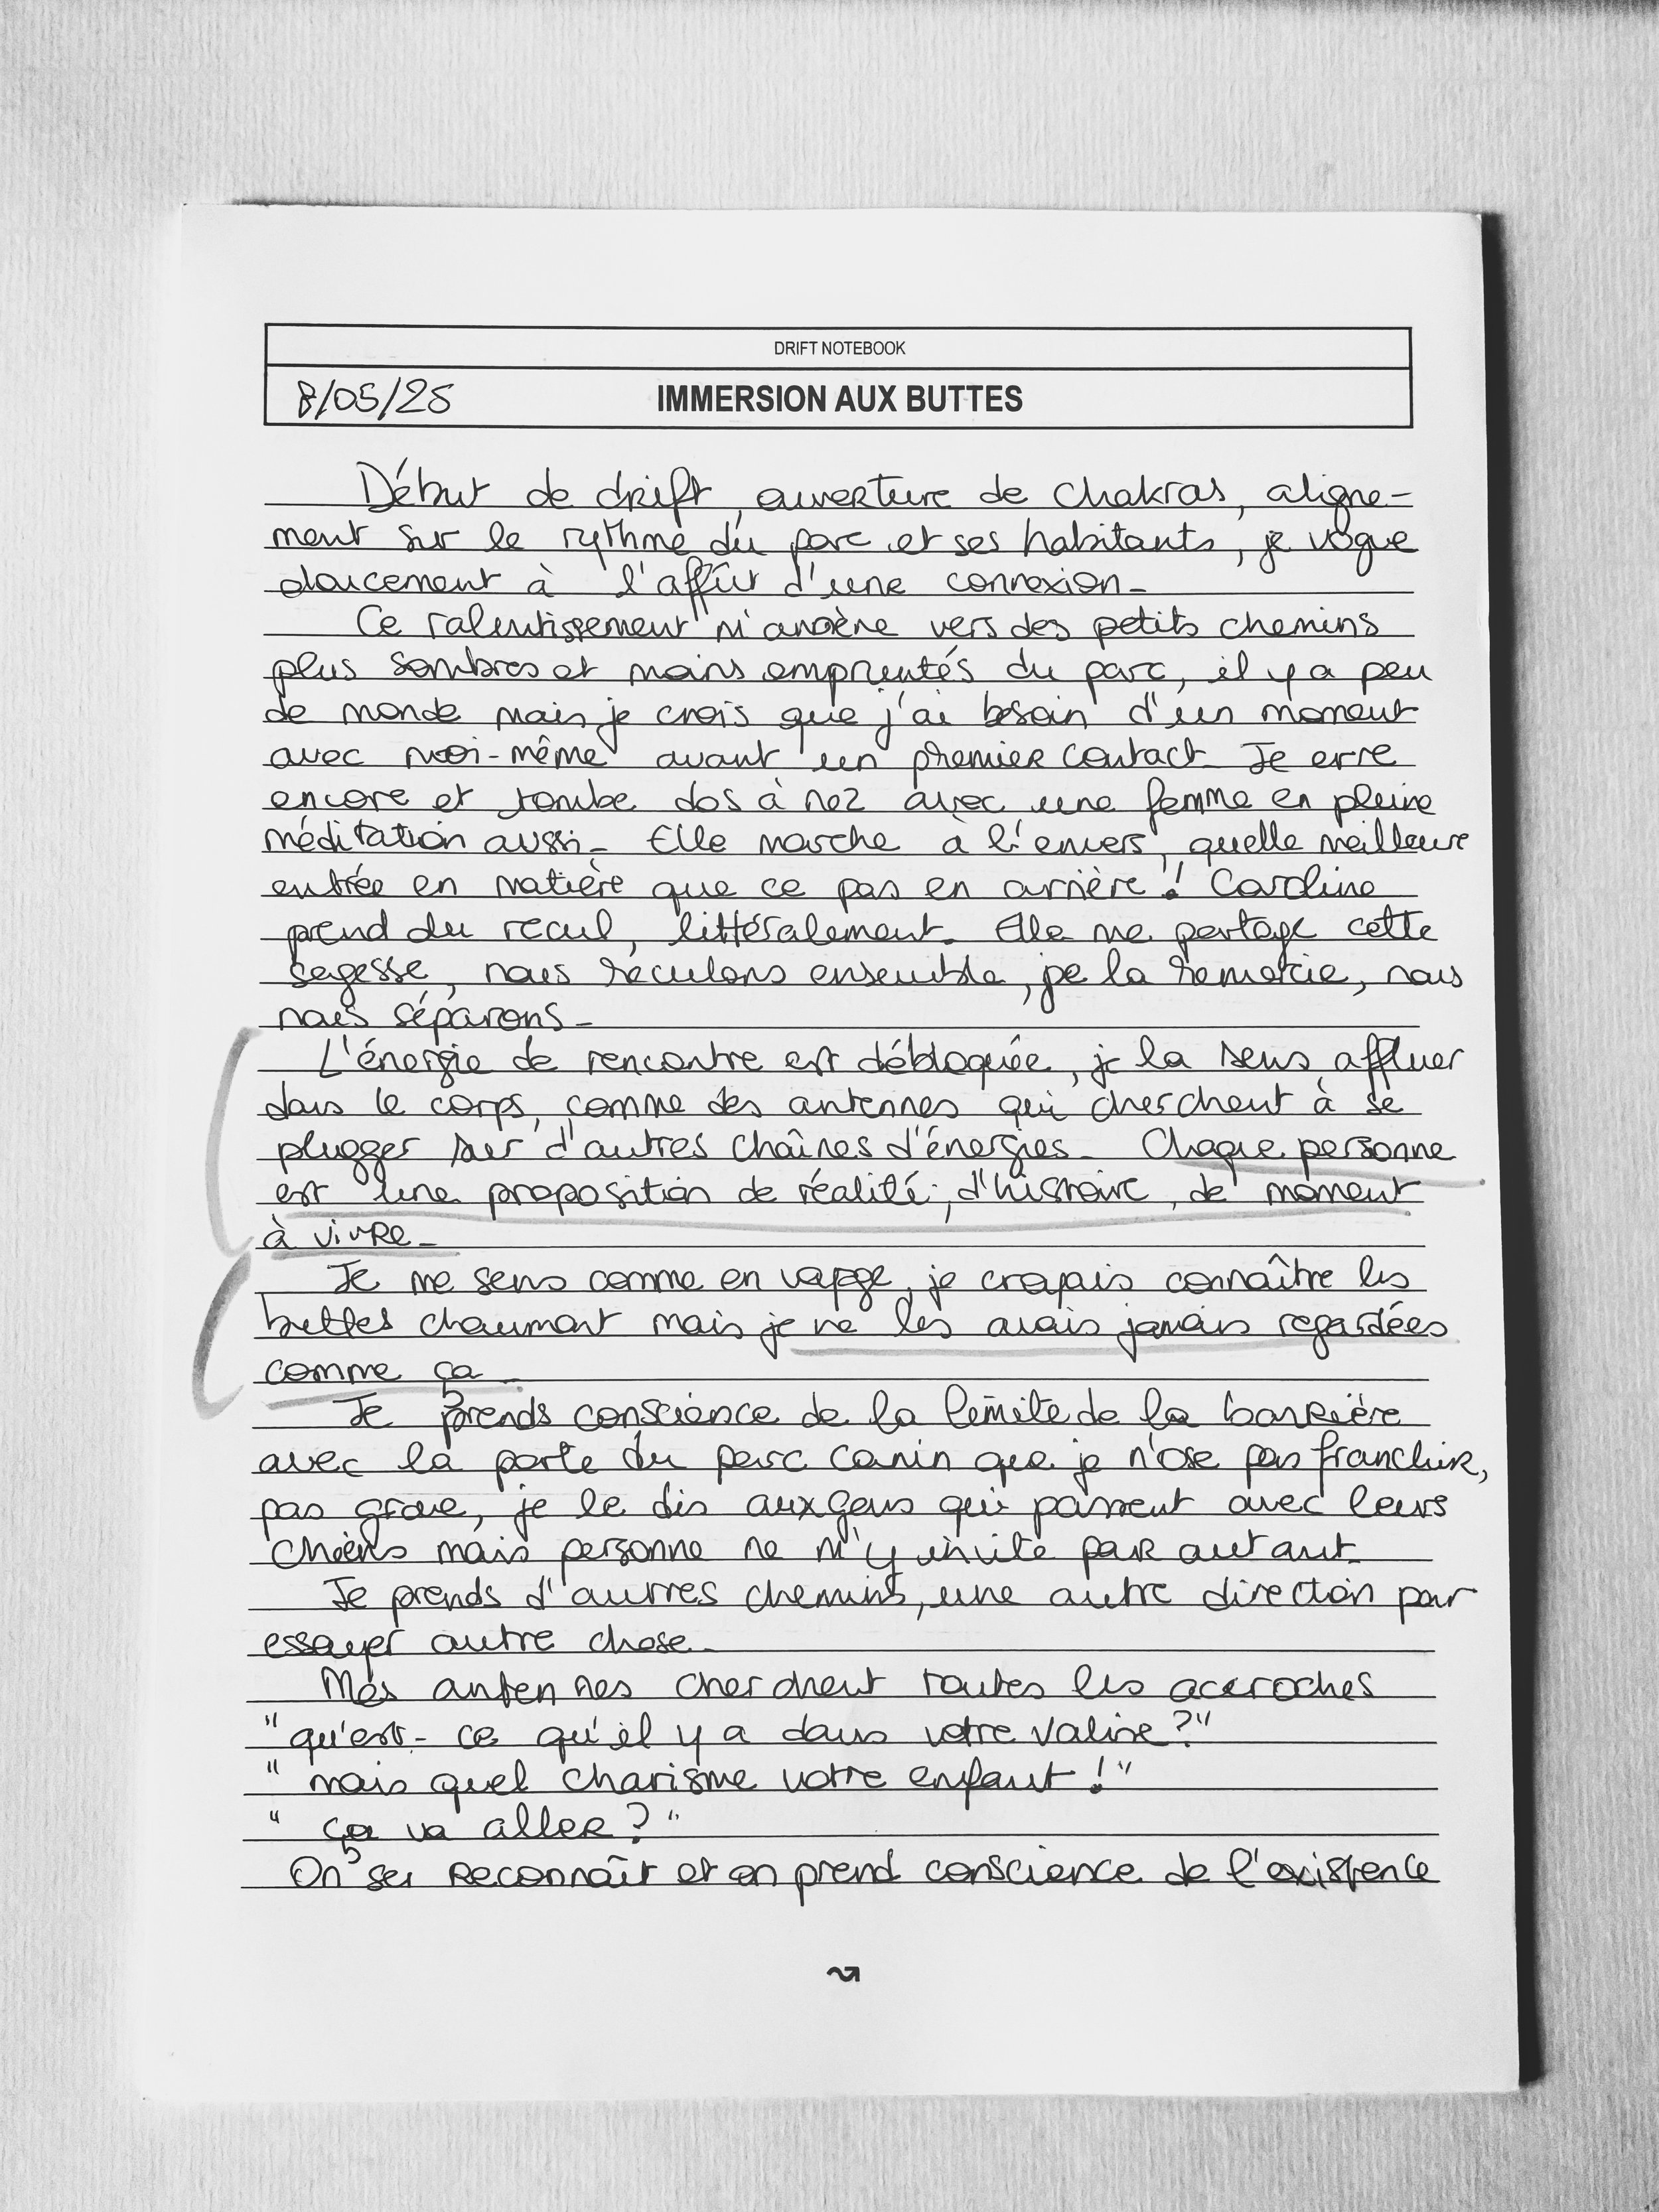 DRIFT NOTEBOOK
8/05/25 IMMERSION AUX BUTTES
Début de drift, ouverture de chakras, aligne-
ment sur le rythme du parc et ses habitants, je vogue
doucement à l'affût d'une connexion_
Ce ralentissement m'amène vers des petits chemins
plus sombres et moins empruntés du parc, il y a peu
de monde mais je crois que j'ai besoin d'un moment
avec moi-même avant un premier contact_ Je erre
encore et tombe dos à nez avec une femme en pleine
méditation aussi_ Elle marche à l'envers, quelle meilleure
entrée en matière que ce pas en arrière ! Caroline
prend du recul, littéralement. Elle me partage cette
sagesse, nous reculons ensemble, je la remercie, nous
nous séparons_
L'énergie de rencontre est débloquée, je la sens affluer
dans le corps, comme des antennes qui cherchent à se
plugger sur d'autres chaînes d'énergies_ Chaque personne
est une proposition de réalité, d'histoire, de moment
à vivre_
Je me sens comme en voyage, je croyais connaître les
buttes chaumont mais je ne les avais jamais regardées
comme ça_
Je prends conscience de la limite de la barrière
avec la porte du parc canin que je n'ose pas franchir,
pas grave, je le dis aux gens qui passent avec leurs
chiens mais personne ne m'y invite par autant_
Je prends d'autres chemins, une autre direction pour
essayer autre chose_
Mes antennes cherchent toutes les accroches
"qu'est-ce qu'il y a dans votre valise ?"
"mais quel charisme votre enfant !"
"ça va aller ?"
On se reconnaît et on prend conscience de l'existence